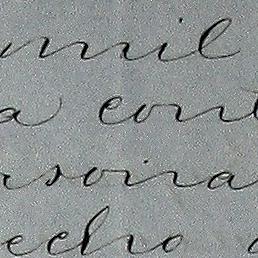 mil
a cont
rsoira
echo